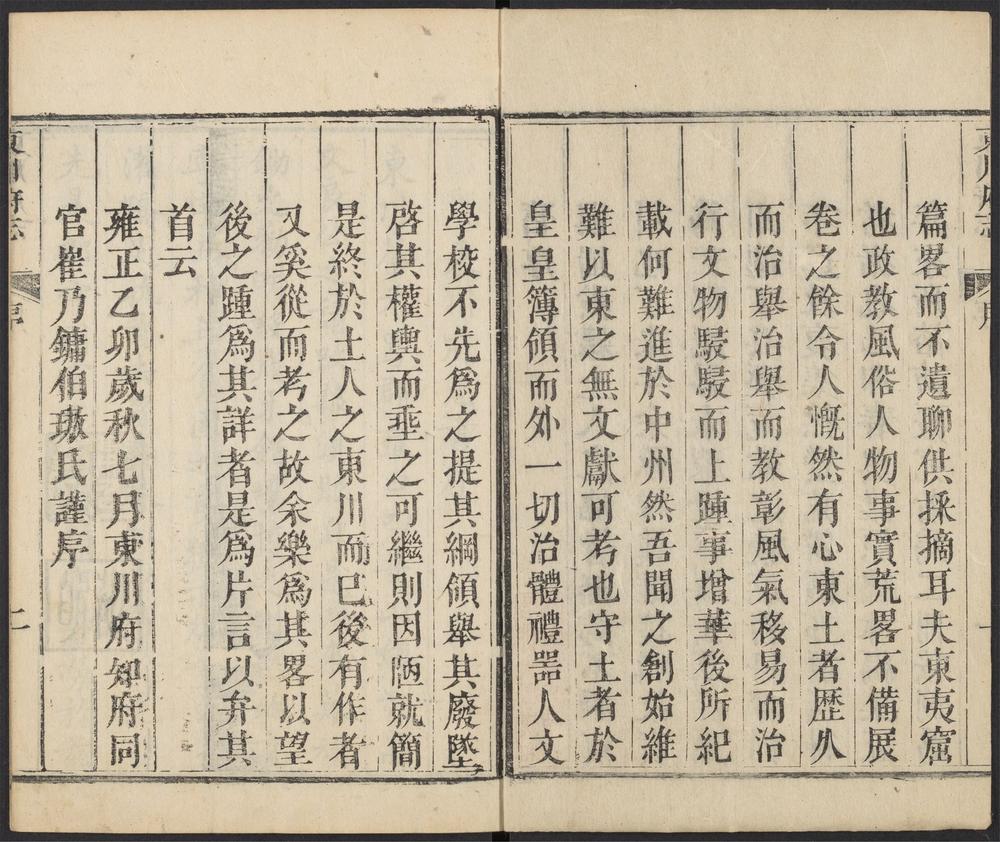 篇畧而不遺聊供採摘耳夫東夷窟
也政教風俗人物事實荒畧不備展
卷之餘令人慨然有心東土者歷久
而治舉治舉而教彰風氣移易而治
行文物駸駸而上踵事增華後所紀
載何難進於中州然吾聞之創始維
難以東之無文獻可考也守土者於
皇皇簿領而外一切治體禮器人文
學校不先爲之提其綱領舉其廢墜
啓其權輿而埀之可繼則因陋就簡
是終於土人之東川而已後有作者
又奚從而考之故余樂爲其畧以望
後之踵爲其詳者是爲片言以弁其
首云
雍正乙卯歲秋七月東川府知府同
官崔乃鏞伯璈氏謹序
東川府志
序